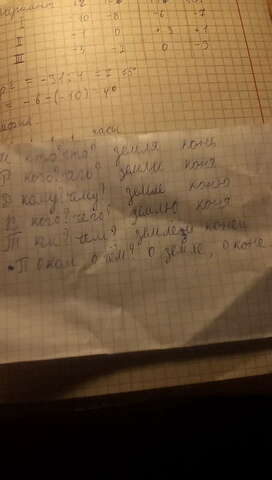 I -10 -8 -6 -7
II -1 0 +3 +1
III -2 0 -3
= -31 : 4 =
= -6 - (-10) = 4°
часы
И кто? что? земля конь
Р кого? чего? земли коня
Д кому? чему? земле коню
В кого? чего? землю коня
Т кем? чем? землей конем
П о ком, о чём? о земле, о коне